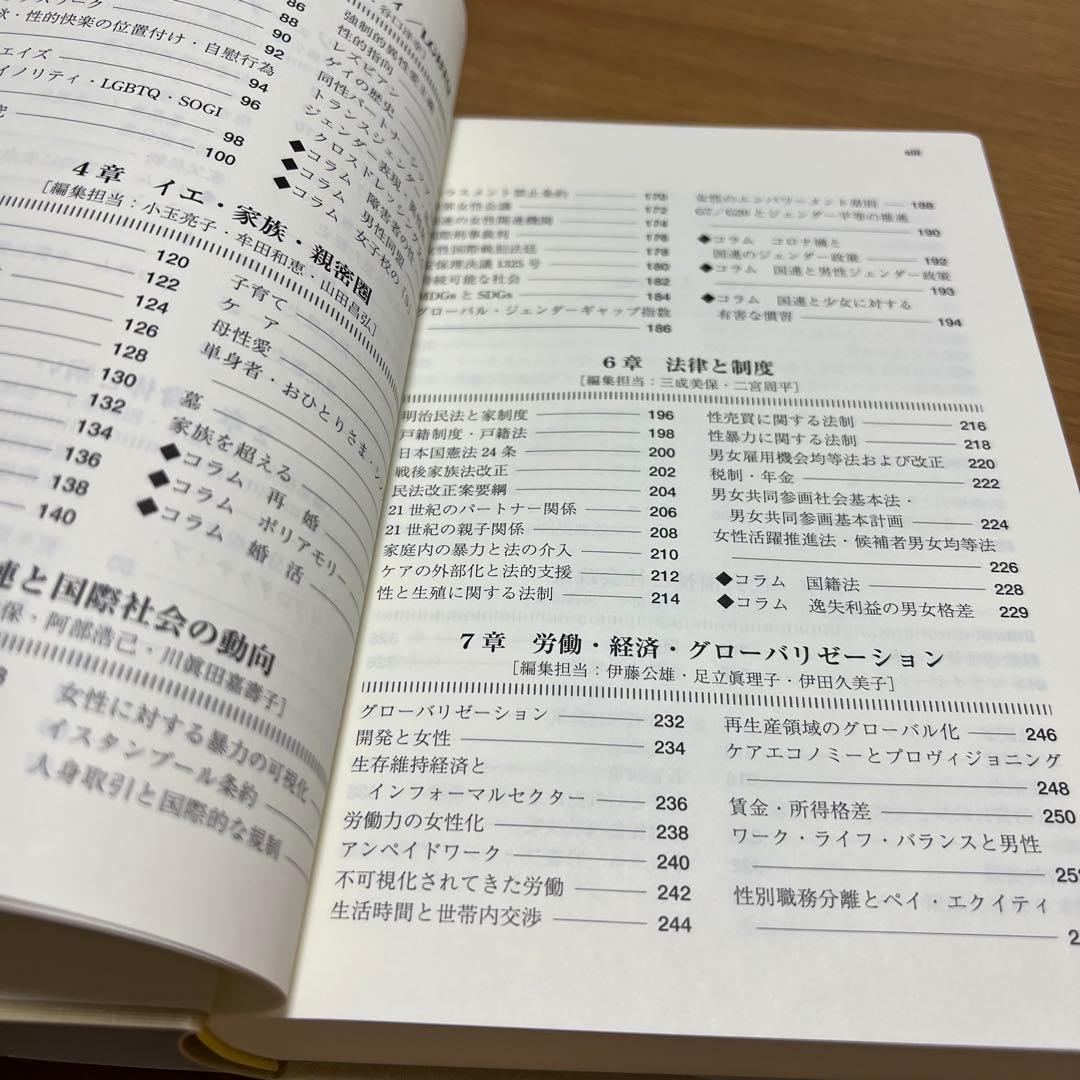 86
88
90
・性的快楽の位置付け・自慰行為
92
エイズ
94
イノリティ・LGBTQ・SOGI
96
98
100
性的指向
レズビアン
ゲイの歴史
同性パートナー
◆コラム
◆コラム
◆コラム
4章 イエ・家族・親密圏
[編集担当:小玉亮子・牟田和恵・山田昌弘]
120
122
124
126
128
130
132
134
136
138
140
子育て
ケア
母性愛
単身者・おひとりさま
墓
家族を超える
◆コラム 再婚
◆コラム ポリアモリー
◆コラム 婚活
連と国際社会の動向
保・阿部浩己・川眞田嘉壽子]
女性に対する暴力の可視化
イスタンブール条約
人身取引と国際的な
xiii
170
172
174
178
178
180
182
MDGs と SDGs 184
グローバル・ジェンダーギャップ指数
186
女性のエンパワーメント原則 188
G7/G20とジェンダー平等の推進
190
◆コラム コロナ禍と
国連のジェンダー政策 192
◆コラム 国連と男性ジェンダー政策
193
◆コラム 国連と少女に対する
有害な慣習 194
6章 法律と制度
[編集担当:三成美保・二宮周平]
明治民法と家制度 196
戸籍制度・戸籍法 198
日本国憲法24条 200
戦後家族法改正 202
民法改正案要綱 204
21世紀のパートナー関係 206
21世紀の親子関係 208
家庭内の暴力と法の介入 210
ケアの外部化と法的支援 212
性と生殖に関する法制 214
性売買に関する法制 216
性暴力に関する法制 218
男女雇用機会均等法および改正 220
税制・年金 222
男女共同参画社会基本法・
男女共同参画基本計画 224
女性活躍推進法・候補者男女均等法
226
◆コラム 国籍法 228
◆コラム 逸失利益の男女格差 229
7章 労働・経済・グローバリゼーション
[編集担当:伊藤公雄・足立眞理子・伊田久美子]
グローバリゼーション 232
開発と女性 234
生存維持経済と
インフォーマルセクター 236
労働力の女性化 238
アンペイドワーク 240
不可視化されてきた労働 242
生活時間と世帯内交渉 244
再生産領域のグローバル化 246
ケアエコノミーとプロヴィジョニング
248
賃金・所得格差 250
ワーク・ライフ・バランスと男性
性別職務分離とペイ・エクイティ